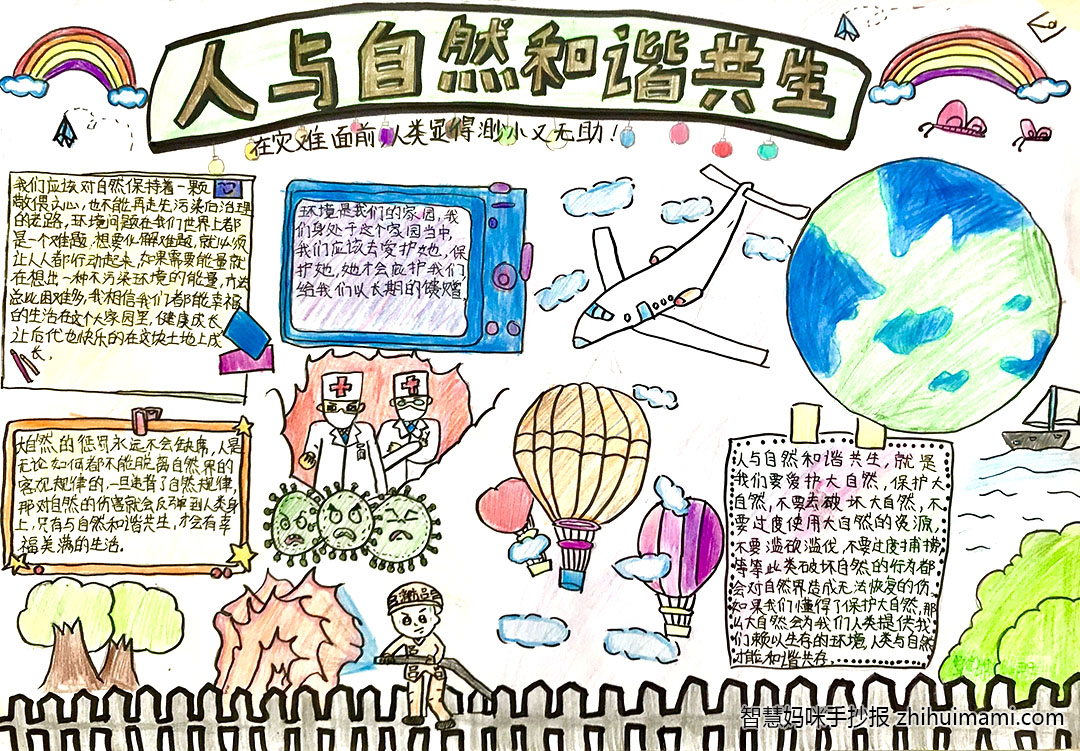 人与自然和谐共生
在灾难面前,人类显得渺小又无助!
我们应该对自然保持着一颗
敬偎之心,也不能再走先污染后治理
的老路,环境问题在我们世界上都
是一个难题.想要化解难题,就必须
让人人都行动起来,如果需要能量就
在想出一种不污染环境的能量,
总比困难多,我相信我们都能幸福
的生活在这个大家园里,健康成长
让后代也快乐的在这块土地上成
长,
环境是我们的家园,我
们身处于这个家园当中,
我们应该去爱护她,保
护她,她才会庇护我们,
给我们以长期的馈赠,
大自然的惩罚永远不会缺席,人是
无论如何都不能脱离自然界的
客观规律的,一旦违背了自然规律,
那对自然的伤害就会反弹到人类身
上,只有与自然和谐共生,才会有幸
福美满的生活.
人与自然和谐共生,就是
我们要爱护大自然,保护大
自然,不要去破坏大自然,不
要过度使用大自然的资源,
不要滥砍滥伐,不要过度捕捞
等等此类破坏自然的行为都
会对自然界造成无法恢复的伤,
如果我们懂得了保护大自然,那
么大自然会为我们人类提供我
们赖以生存的环境,人类与自然
才能和谐共存,
智慧妈咪手抄报 zhihuimami.com